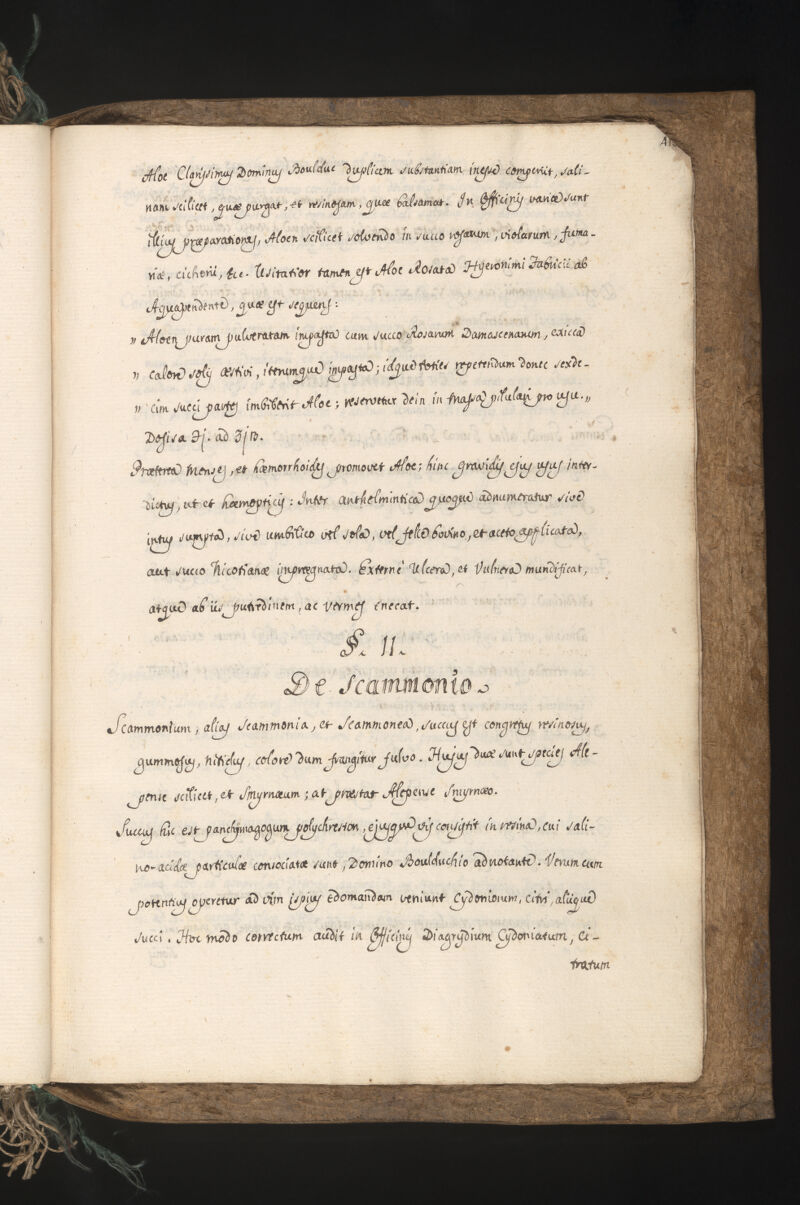 Aloe Clarissimus Dominus Boulduc duplicem substantiam inesse comperiit, sali-
nam scilicet, quæ purgat, et resinosam, quæ balsamat. In Officinis variæ sunt
illius præparationes, Aloen scilicet solvendo in succo rosarum, violarum, fuma-
riæ, cichorii, &c. Usitatior tamen est Aloe Rosata Hyeronimi Fabricii ab
Aquapendente, quæ est sequens:
„ Aloen puram pulveratam impasta cum succo Rosarum Damascenarum, exicca
„ calore solis æstivi, iterumque impasta; idque toties repetendum donec sexde-
„ cim succi partes imbiberit Aloe; reservetur dein in massa pilulari pro usu. „
Dosis a ℈j. ad ʒjß.
Præterea menses, et hæmorrhoides promovet Aloe; hinc gravidis ejus usus inter-
dictus, ut et hæmopticis: Inter anthelmintica quoque adnumeratur sive
intus sumpta, sive umbilico vel sola, vel felle bovino, et aceto applicata,
aut succo Nicotianæ impregnata. Externe Ulcera, et Vulnera mundificat,
atque ab iis putredinem, ac vermes enecat.
§. II.
De Scammonio.
Scammonium, alias Scammonia, et Scammonea, succus est congretus resinosus,
gummosus, nitidus, colore dum frangitur fulvo. Hujus duæ sunt species Ale-
pense scilicet, et Smyrnæum; at præstat Alepense Smyrnæo.
Succus hic est panchymagogum polychreston, ejusque vis consistit in resina, cui sali-
no-acidæ particulæ consociatæ sunt, Domino Boulduchio adnotante. Verum cum
potentius operetur ad vim ipsius edomandam veniunt Cydoniorum, citri, aliique
succi. Hoc modo correctum audit in Officinis Diagrydium Cydoniatum, Ci-
tratum